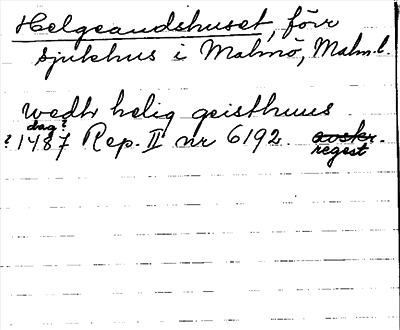 Helgeandshuset, förr
sjukhus i Malmö, Malm. l.
wedh helig geisthuus
dag?
? 1487 Rep. II nr 6192. avskr.
regest